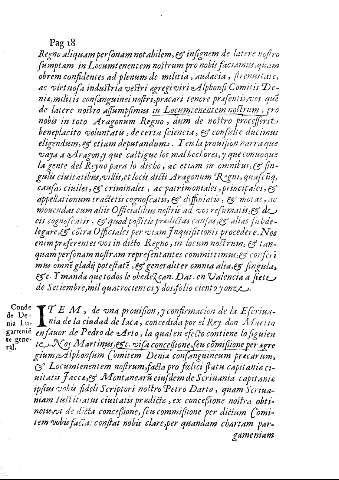 Pag 18
Regno aliquam personam notabilem, & insignem de latere nostro
sumptam in Locumtenentem nostrum pro nobis faciamus, quam
obrem confidentes ad plenum de militia, audacia, strenuitate,
ac virtuosa industria vestri egregij viri Alphonsi Comitis De-
nie, militis consanguinei nostri, precari tenore presentis, vos que
de latere nostro assumpsimus in Locumtenentem nostrum, pro
nobis in toto Aragonum Regno, dum de nostro processerit
beneplacito voluntatis, de certa sciencia, & consulte ducimus
eligendum, & etiam deputandum. Y en la provision narra que
vaya a Aragon, y que castigue los malhechores, y que convoque
la gente del Reyno para lo dicho, ac etiam in omnibus, & sin-
gulis civitatibus, villis, et locis dicti Aragonum Regni, quascunq,
causas civiles, & criminales, ac patrimoniales, principales, &
appellationum tractetis cognoscatis, & diffiniatis, & motas, ac
movendas cum aliis Officialibus nostris ad vos
eis cognoscatis, & quod possitis predictas causas, & alias subde-
legare, & côtra Officiales per viam Inquisitionis procedere. Nos
enim preferentes vos in dicto Regno, in locum nostrum, & tan-
quam personam nostram representantes committimus, & conferi
mus omnê gladij potestatê, & generaliter omnia alia, & singula,
& c. Y manda que todos le obedezcan. Dat. en Valencia a siete
de Setiembre, mil quatrocientos y dos folio ciento y onze.
Conde
de De-
nia Lu-
garteniê
te gene-
ral.
ITEM, de una provision, y confirmacion de la Escriva-
nia de la ciudad de Iaca, concedida por el Rey don Martin
en favor de Pedro de Arto, la qual en efecto contiene lo siguiên
te. Nos Martinus, &c. visa concessione, seu comissione per egre
gium Alphonsum Comitem Denia consanguineum precarum,
& Locumtenentem nostrum, facta pro felici statu capitania ci-
vitatis Iacce, & Montanearû eiusdem de Scrivania capitanie
ipsius vobis fideli Scriptori nostro Petro Darto, quam Scriva-
niam civitatis predicte, ex concessione nostra obti-
netis, et de dicta concessione, seu commissione per dictum Comi-
tem vobis facta: constat nobis clare, per quandam chartam par-
gameniam